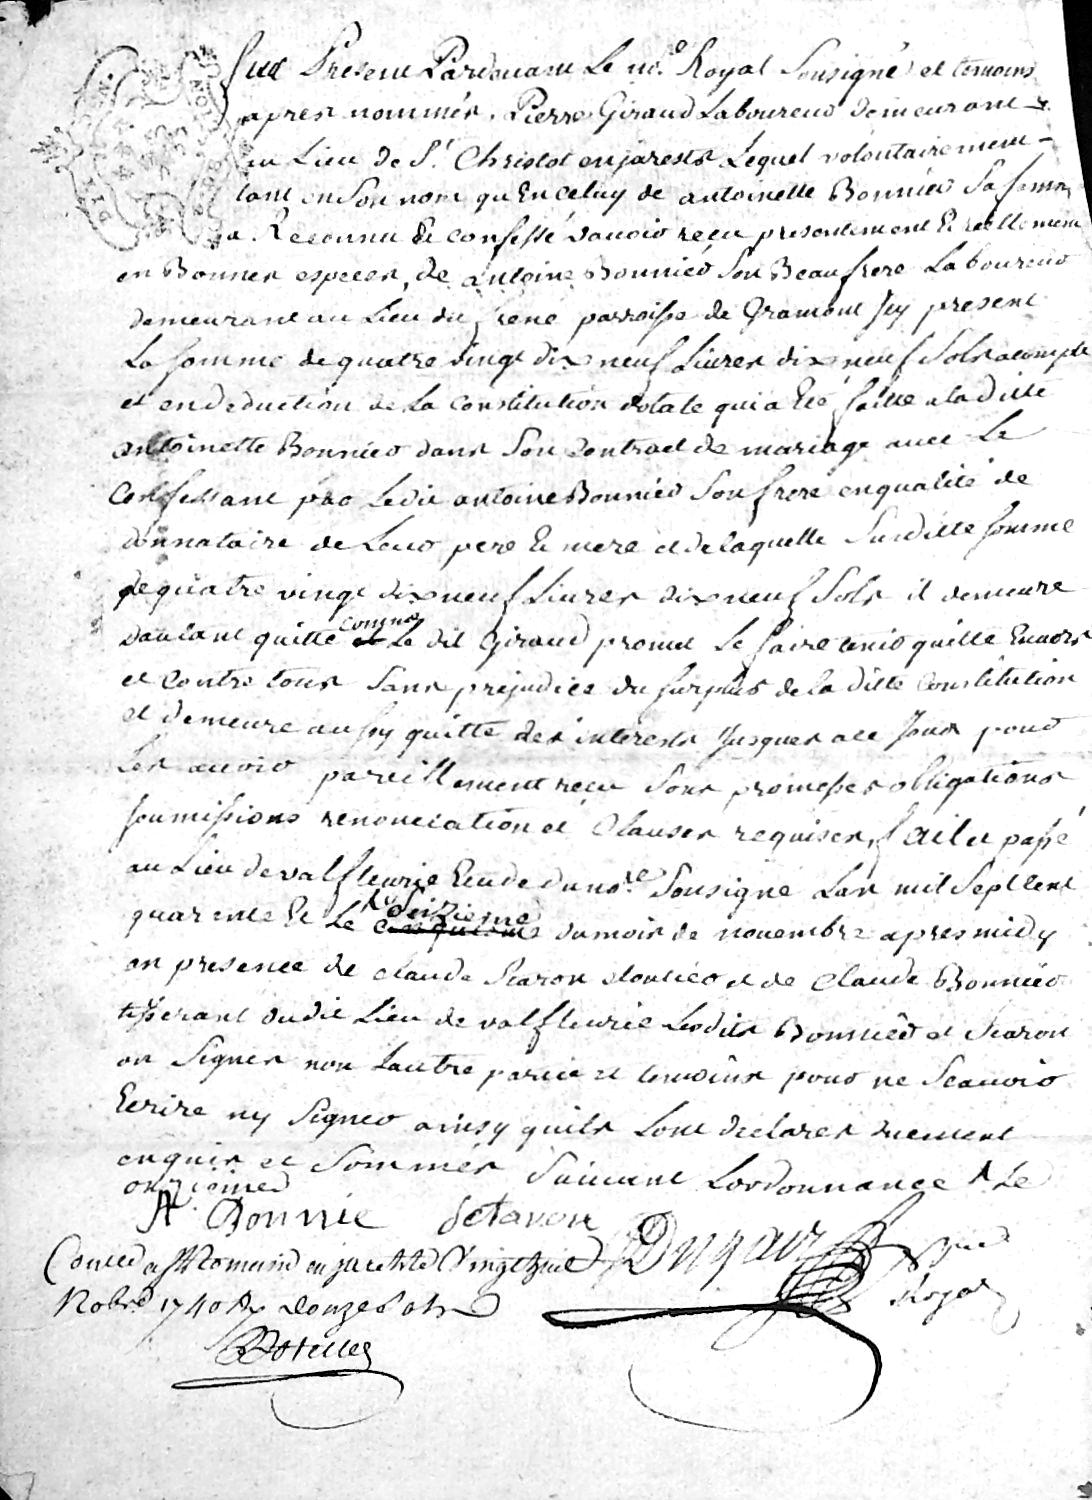 fut Present Pardevant Le no.re Royal Sousigné et temoins
apres nommés, Pierre Giraud Laboureur demeurant
au Lieu de St Christot en jarests Lequel volontairement
tant en Son nom qu'En Celuy de antoinette Bonnier Sa femme
a Reconnu Et confessé d'avoir reçu presentement Et reellement
en Bonnes especes, de antoine Bonnier Son Beaufrere Laboureur
demeurant au Lieu du frene parroisse de Gramont Jcy present
La somme de quatre Vingt dix neuf Livres dix neuf Sols acompte
et en deduction de La Constitution dotale qui a Eté faitte a la ditte
antoinette Bonnier dans Son Contract de mariage avec Le
Confessant par Le dit antoine Bonnier Son frere en qualité de
donnataire de Leur pere Et mere et de laquelle Susditte somme
de quatre vingt dix neuf Livres dix neuf Sols il demeure
d'autant quitte comme Le dit Giraud promet Le faire tenir quitte Envers
et Contre tous Sans prejudice du surplus de la ditte Constitution
et demeure aussy quitte des interests Jusques a ce Jour pour
Les avoir pareillement reçu Sous promesses obligations
soumissions renonciation et Clauses requises, fait et passé
au Lieu de valfleurie Etude du no.re Sousigné L'an mil Sept Cent
quarente Et Le seizieme cinquieme du mois de novembre apres midy
en presence de Claude Staron et de Claude Bonnier
tisserant dudit Lieu de valfleurie Lesdits Bonnier et Staron
on Signer non L'autre partie et temoins pour ne Scavoir
Ecrire ny Signer ainsy quils L'ont declarer duement
enquis et Sommés Suivant L'ordonnance Le
onzieme
A Bonnie Setaron Dugaiz
Royal
Nobre 1740 douze sols